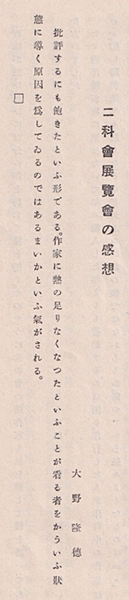 二科會展覽會の感想
大野隆德
批評するにも飽きたといふ形である。作家に熱の足りなくなつたといふことが看る者をかういふ狀
態に導く原因を爲してゐるのではあるまいかといふ氣がされる。